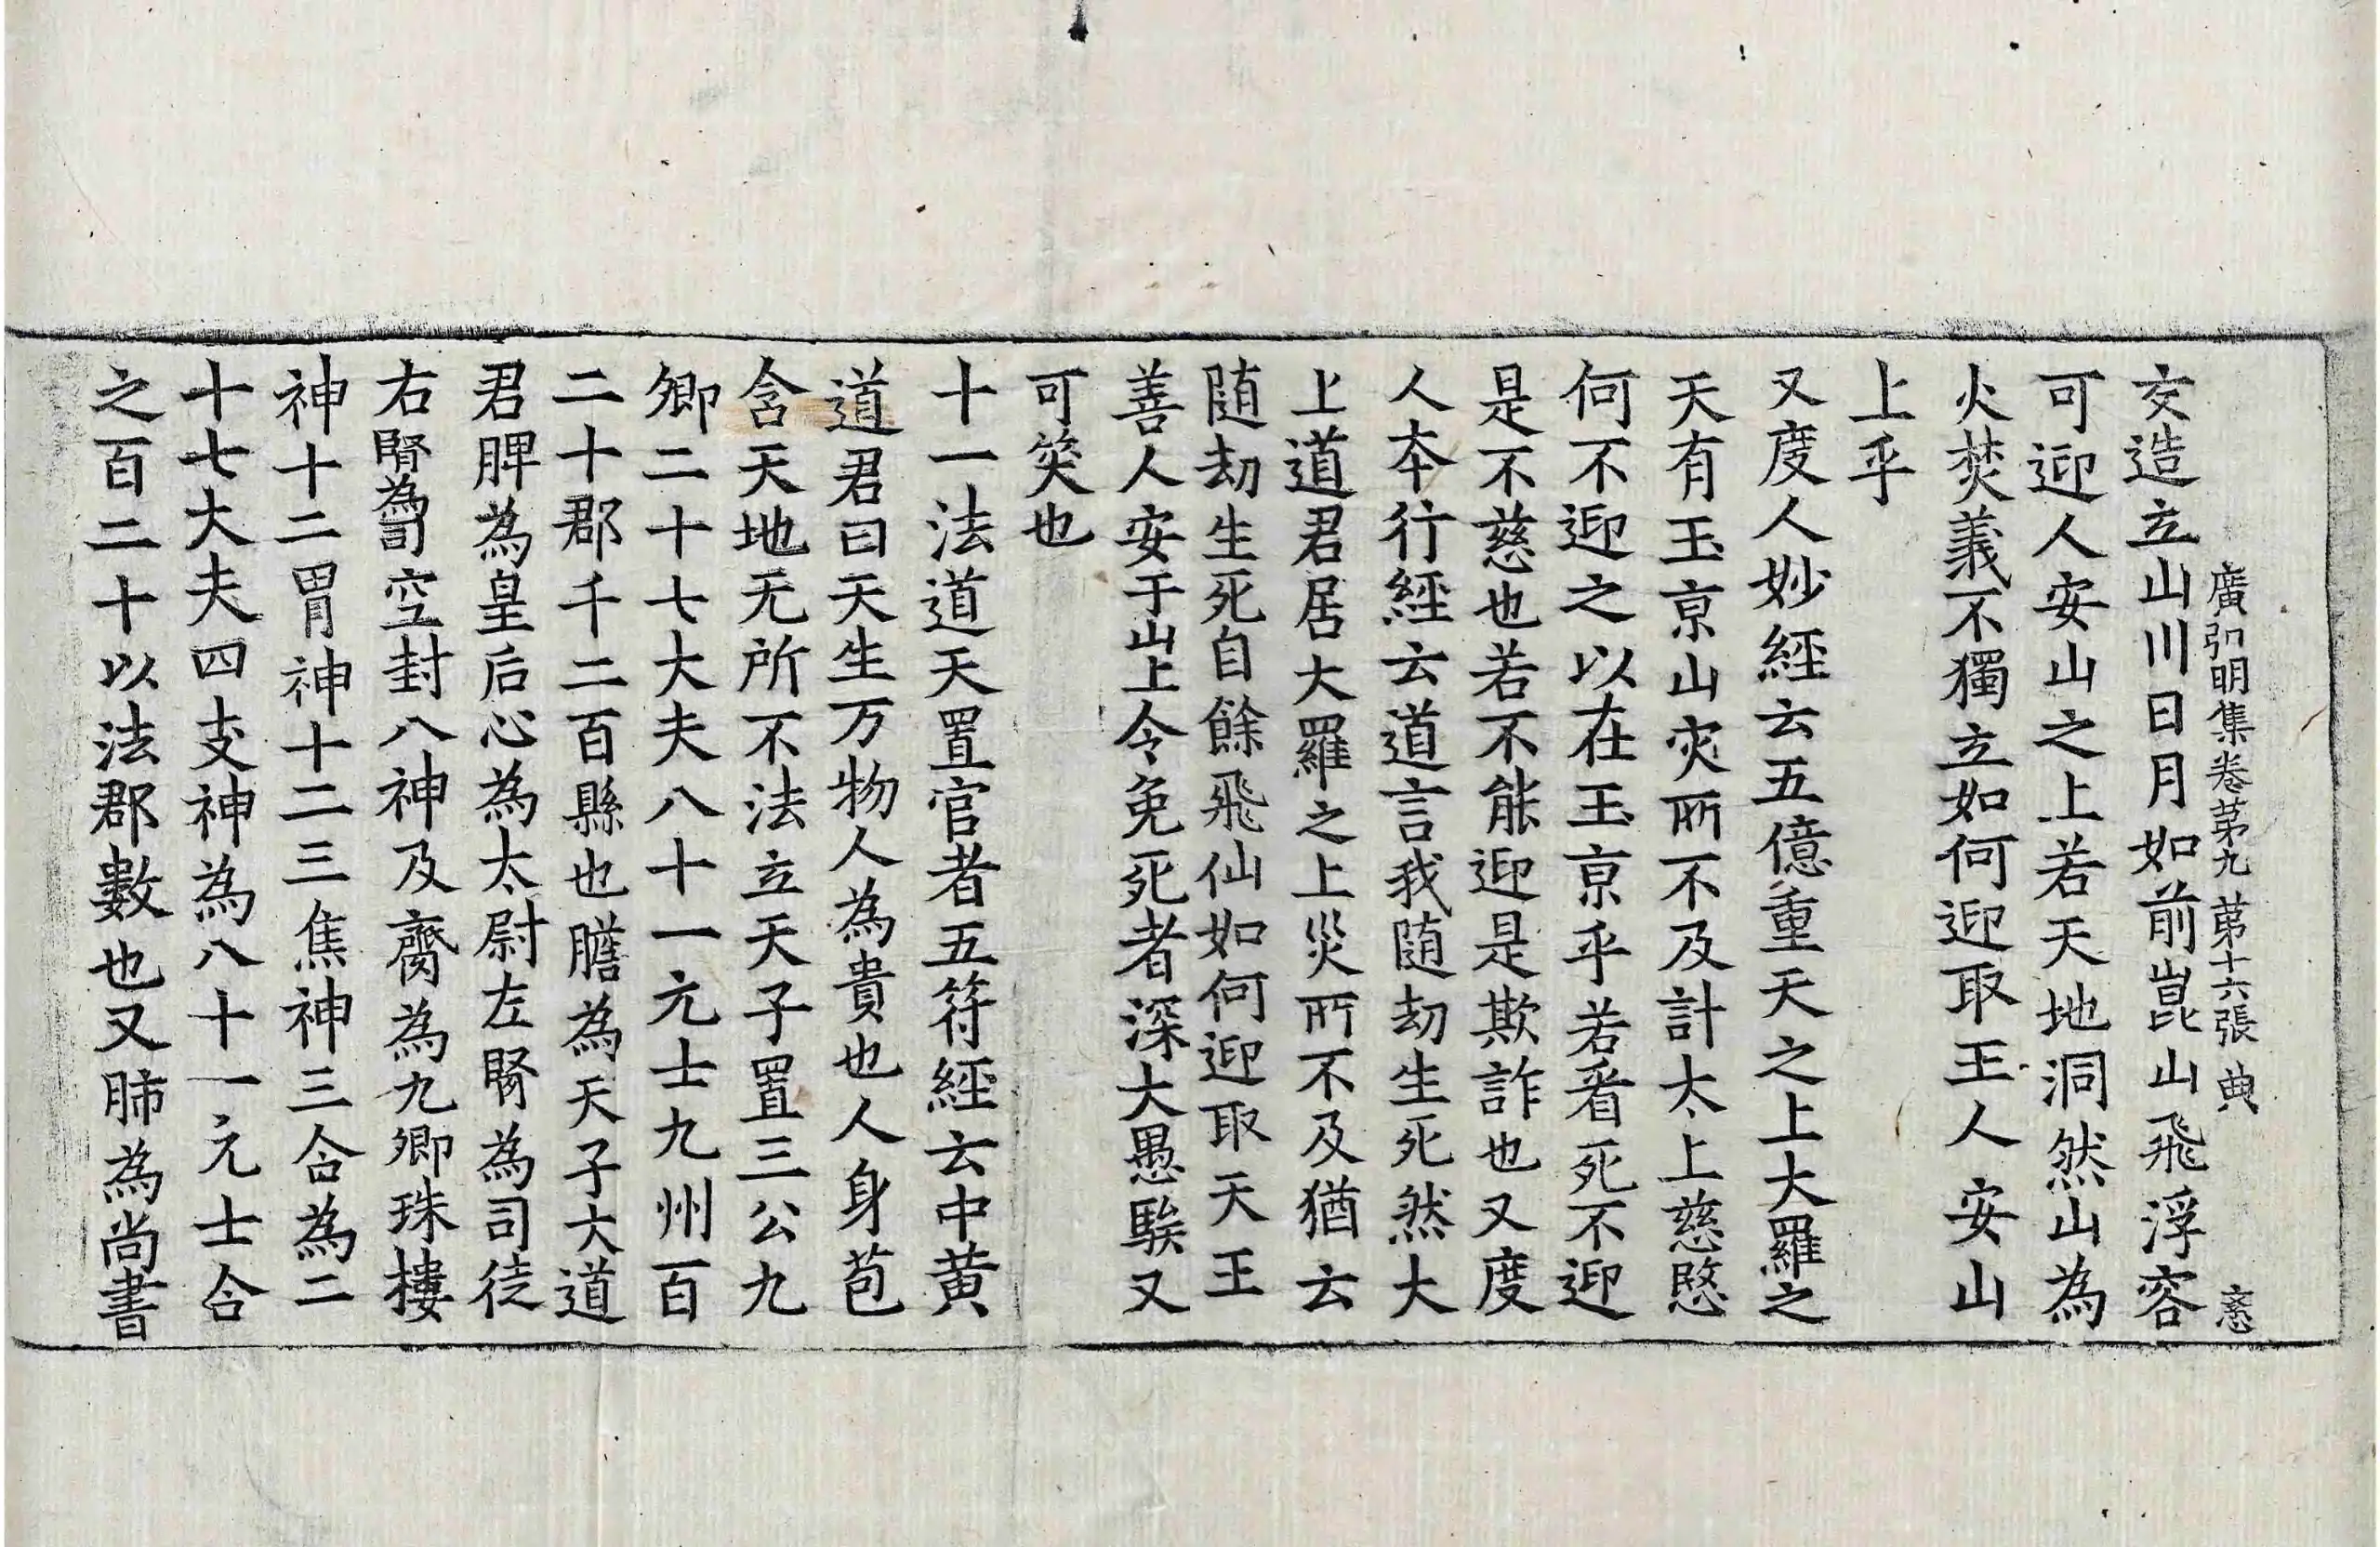 廣弘明集卷苐九 苐十六張 典
交造立山川日月如前崑山飛浮容
可迎人安山之上若天地洞然山為
火焚義不獨立如何迎取王人安山
上乎
又度人妙經云五億重天之上大羅之
天有玉京山灾所不及計太上慈愍
何不迎之以在玉京乎若看死不迎
是不慈也若不能迎是欺詐也又度
人本行經云道言我随劫生死然大
上道君居大羅之上災所不及猶云
随劫生死自餘飛仙如何迎取天王
善人安于山上令免死者深大愚騃又
可笑也
十一法道天置官者五符經云中黄
道君曰天生万物人為貴也人身苞
含天地无所不法立天子置三公九
卿二十七大夫八十一元士九州百
二十郡千二百縣也膽為天子大道
君脾為皇后心為太尉左腎為司徒
右腎為司空封八神及齎為九卿珠樓
神十二胃神十二三焦神三合為二
十七大夫四支神為八十一元士合
之百二十以法郡數也又肺為尚書